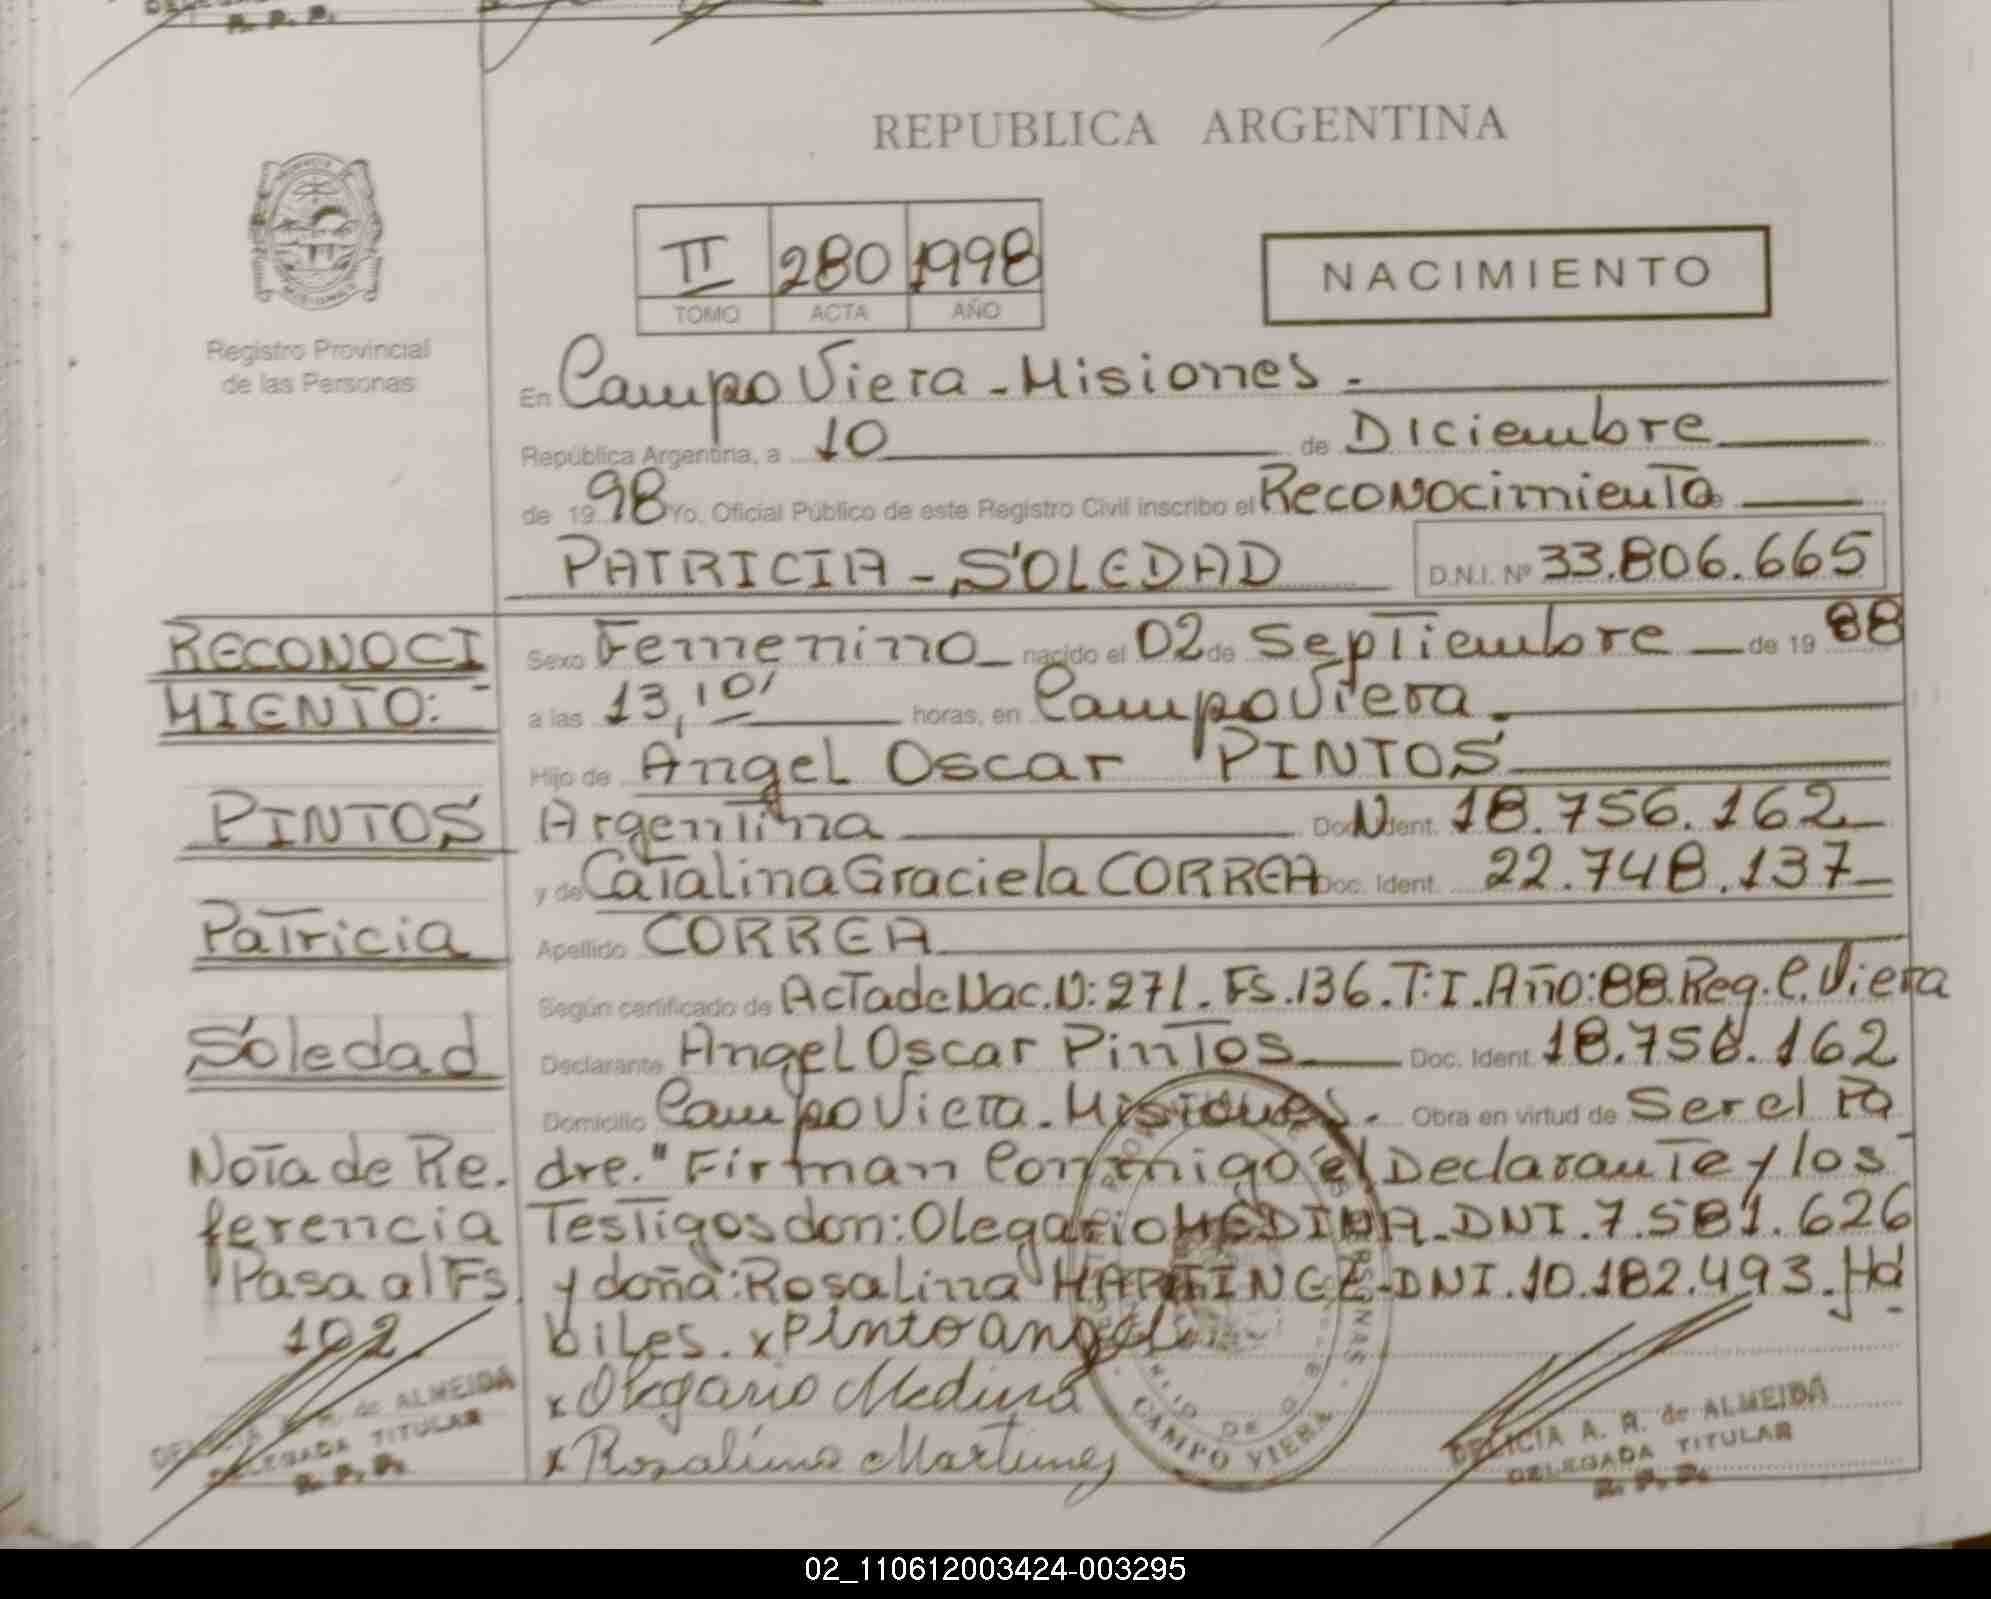 REPUBLICA ARGENTINA
II 280 1998
TOMO ACTA AÑO
NACIMIENTO
Registro Provincial
de las Personas
En Campo Viera - Misiones.-
República Argentina, a 10 de Diciembre
de 19 98 Yo, Oficial Público de este Registro Civil inscribo el Reconocimiento
PATRICIA - SOLEDAD D.N.I. Nº 33.806.665
RECONOCI
MIENTO:-
PINTOS
Patricia
Soledad
Nota de Re.
ferencia
Pasa al Fs.
102.
DELICIA A. R. de ALMEIDA
DELEGADA TITULAR
R. P. P.
Sexo Femenino nacido el 02 de Septiembre de 19 88
a las 13,10' horas, en Campo Viera.
Hijo de Angel Oscar PINTOS
Argentina Doc. Ident. N 18.756.162
y de Catalina Graciela CORREA Doc. Ident. 22.748.137
Apellido CORREA
Según certificado de Acta de Nac. N: 271. Fs. 136. T: I. Año: 88. Reg. C. Viera
Declarante Angel Oscar Pintos Doc. Ident. 18.756.162
Domicilio Campo Viera. Misiones. Obra en virtud de Ser el Pa
dre." Firman Conmigo el Declarante y los
Testigos don: Olegario MEDINA - DNI. 7.581.626
y doña: Rosalina MARTINEZ - DNI. 10.182.493. Há
biles. x Pinto angel
x Olegario Medina
x Rosalina Martinez
CAMPO VIERA
DELICIA A. R. de ALMEIDA
DELEGADA TITULAR
R. P. P.
02_110612003424-003295